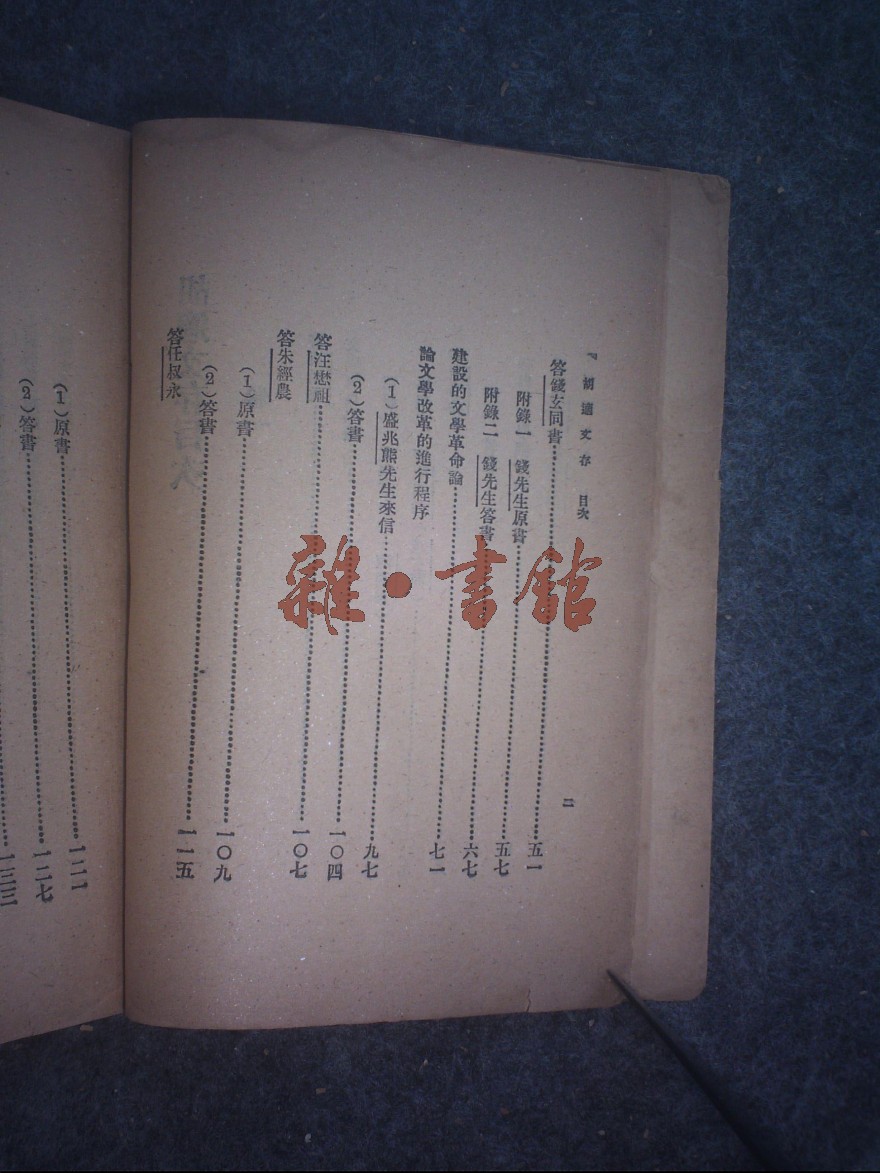 胡適文存 目次
二
答錢玄同書 五一
附錄一 錢先生原書 五七
附錄二 錢先生答書 六七
建設的文學革命論 七一
論文學改革的進行程序
(1)盛兆熊先生來信 九七
(2)答書 一〇四
答汪懋祖 一〇七
答朱經農
(1)原書 一〇九
(2)答書 一一五
答任叔永
(1)原書 一二二
(2)答書 一二七
一三三
雜·書館